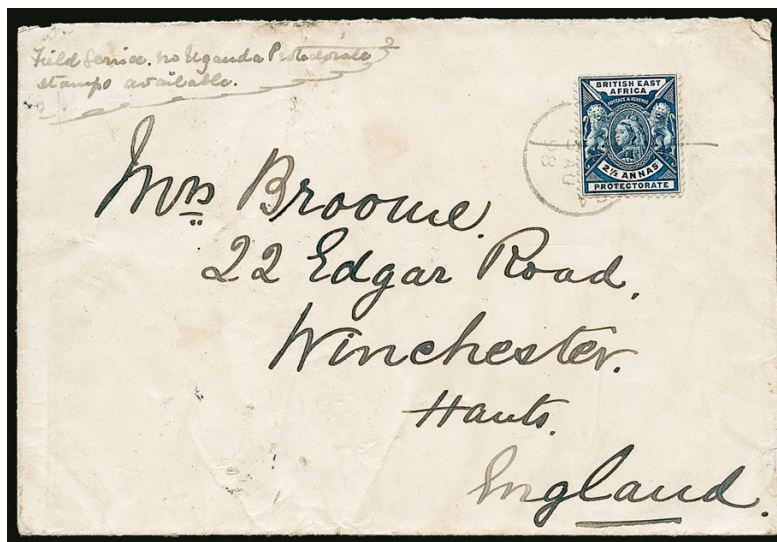 Field Service. no Uganda Protectorate
stamps available.
BRITISH EAST
AFRICA
POSTAGE & REVENUE
2½ ANNAS
PROTECTORATE
AU
98
Mrs Broome.
22 Edgar Road.
Winchester.
Hants.
England.